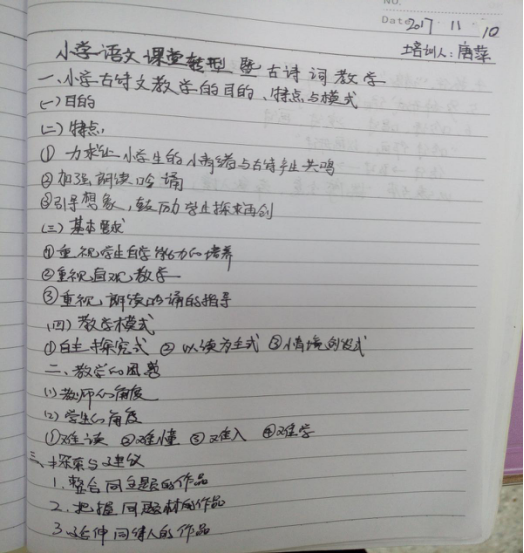 NO.
Date 2017 11 10
培训人：唐萍
小学语文课堂转型暨古诗词教学
一、小学古诗文教学的目的、特点与模式
(一)目的
(二)特点
① 力求让小学生的小情绪与古诗产生共鸣
②加强朗读吟诵
③引导想象，鼓励学生探求再创
(三)基本要求
①重视学生自学能力的培养
②重视直观教学
③重视朗读吟诵的指导
(四)教学模式
①自主探究式 ②以读为主式 ③情境创设式
二、教学的困惑
(1)教师的角度
(2)学生的角度
①难读 ②难懂 ③难入 ④难学
三、探索与建议
1.整合同主题的作品
2.把握同题材的作品
3.延伸同诗人的作品